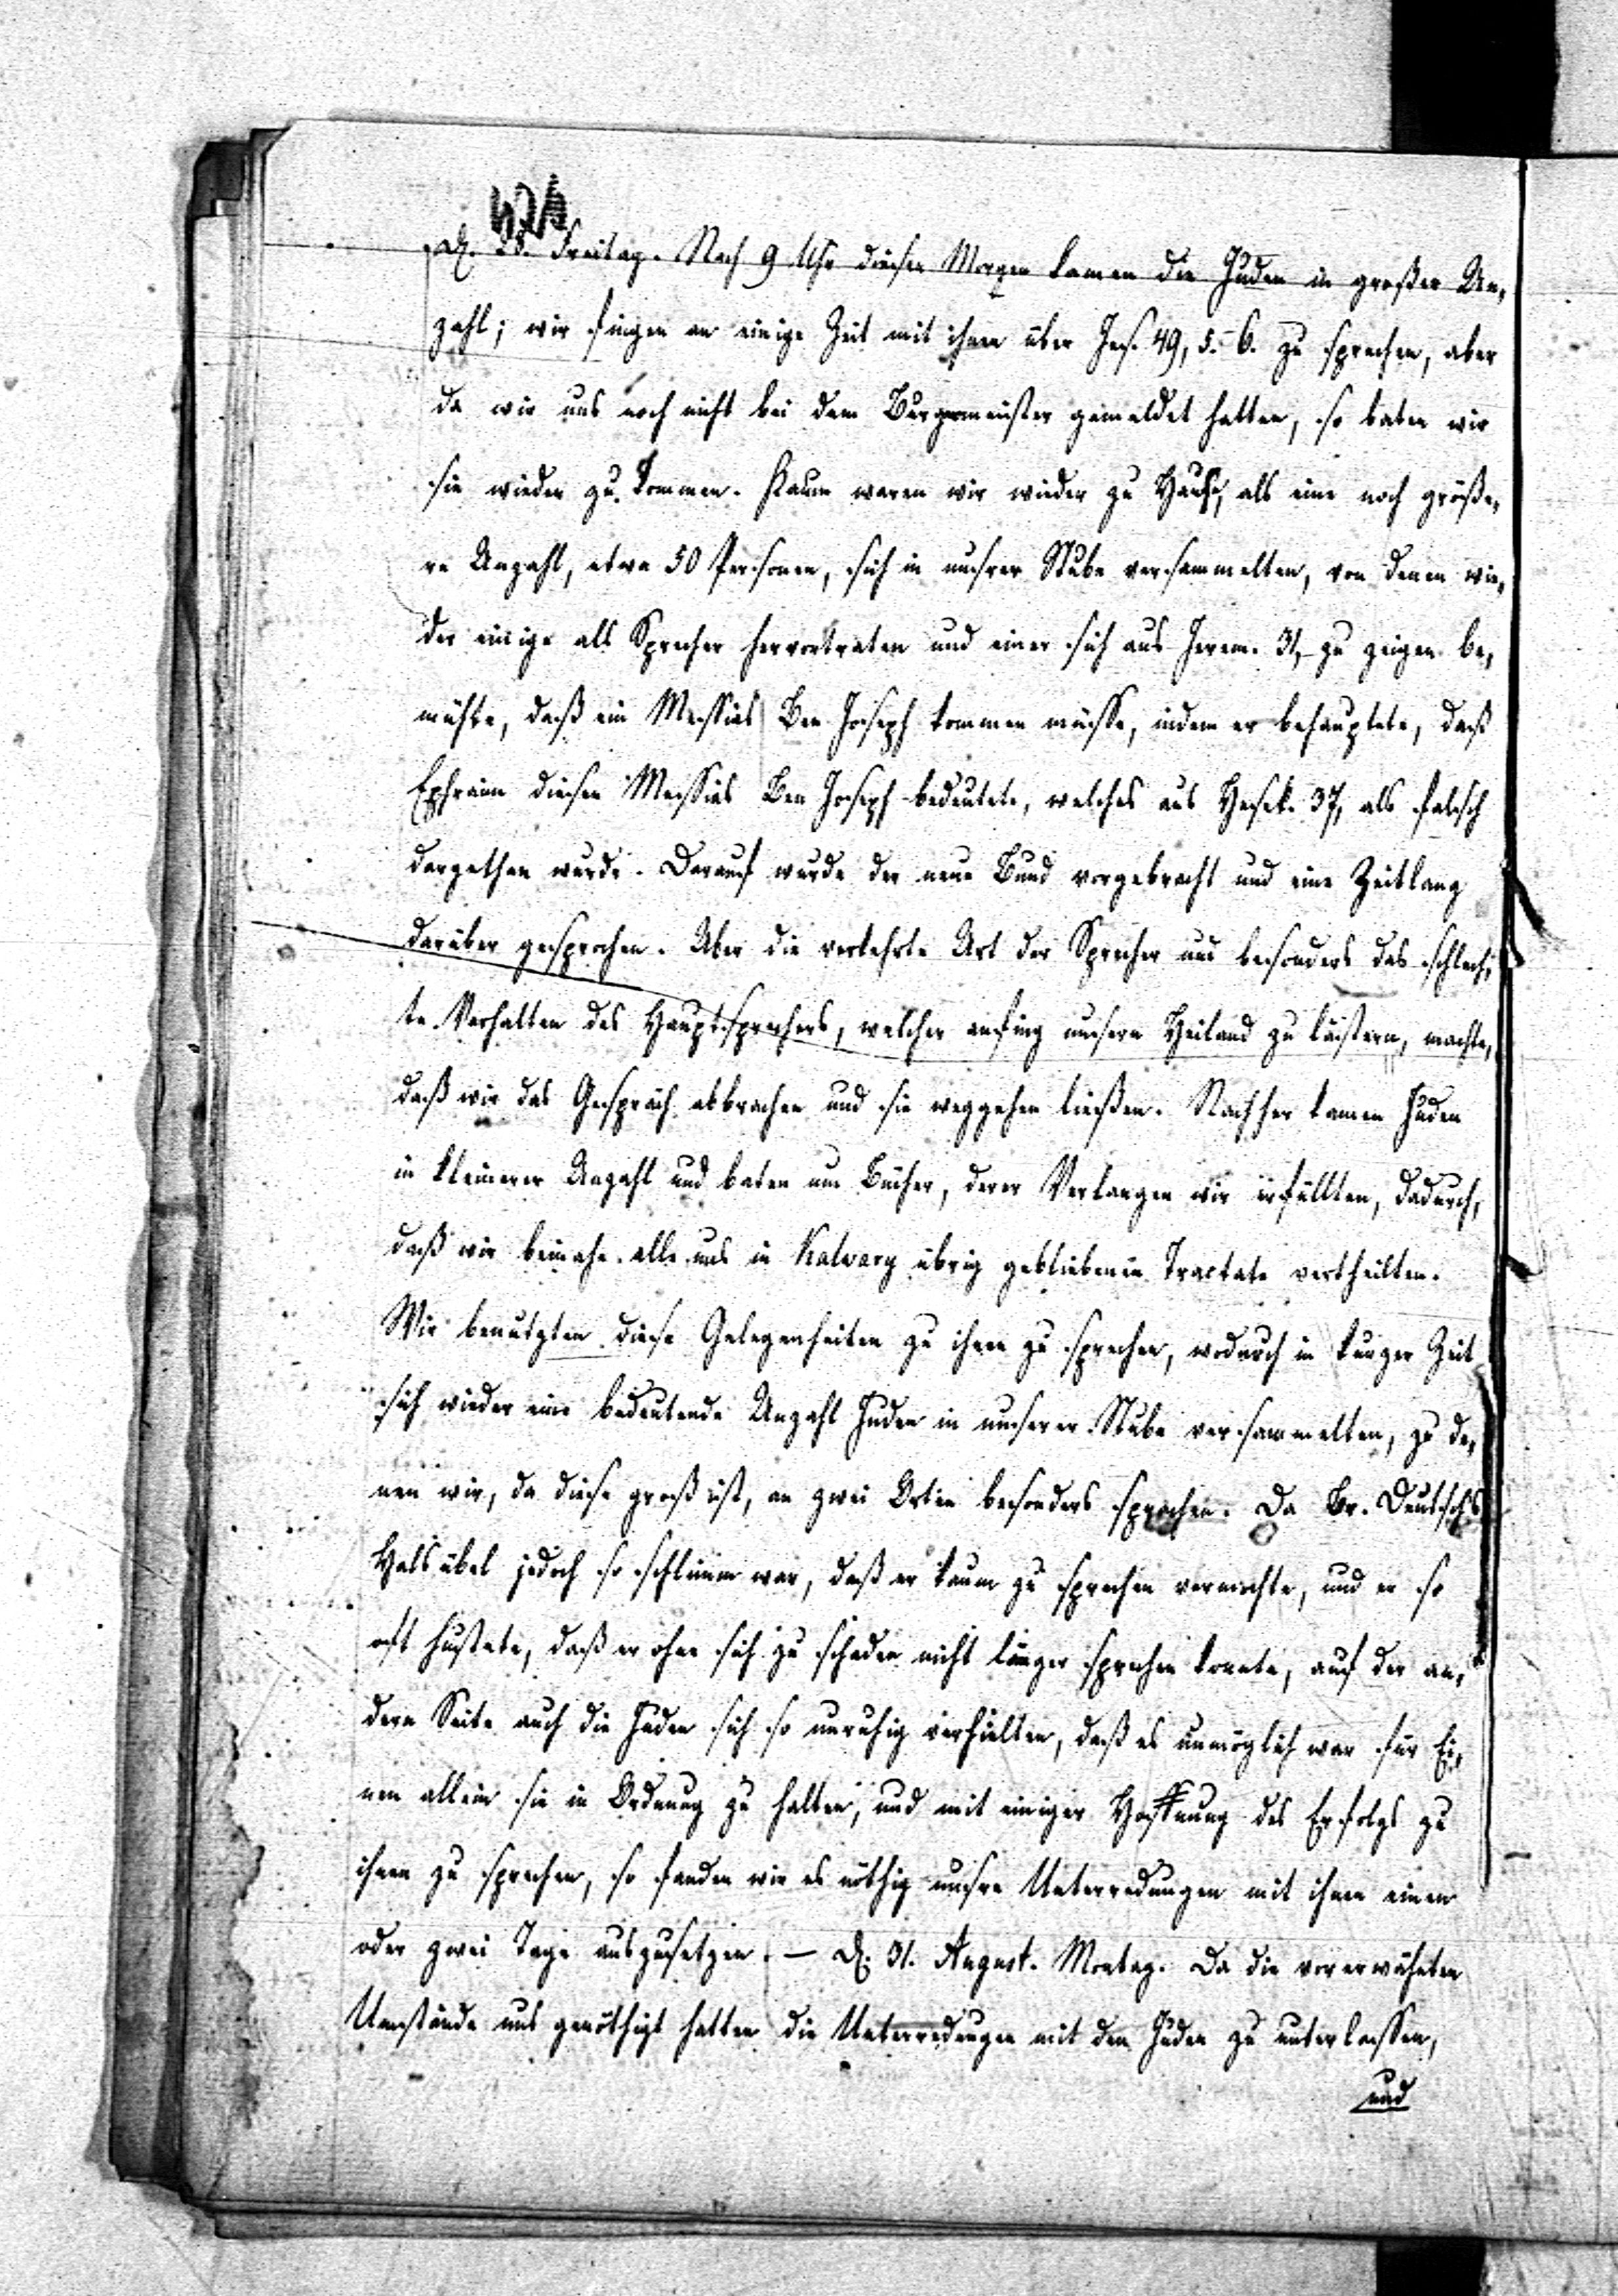 D. 28. Freitag. Nach 9 Uhr diesen Morgen kamen die Juden in großer An-
zahl; wir fingen an einige Zeit mit ihnen über Jes. 49, 5.-6. zu sprechen, aber
da wir uns noch nicht bei dem Burgermeister gemeldet hatten, so baten wir
sie wieder zu kommen. Kaum waren wir wieder zu Hause, als eine noch größe-
re Anzahl, etwa 50 Personen, sich in unsrer Stube versammelten, von denen wie-
der einige als Sprecher hervortraten und einer sich aus Jerem. 31, zu zeigen be-
mühte, daß ein Messias Ben Joseph kommen müsse, indem er behauptete, daß
Ephraim diesen Messias Ben Joseph bedeutete, welches aus Hesek. 37, als falsch
dargethan wurde. Darauf wurde der neue Bund vorgebracht und eine Zeitlang
darüber gesprochen. Aber die verkehrte Art der Sprecher und besonders das schlech-
te Verhalten des Hauptsprechers, welcher anfing unsern Heiland zu lästern, machte,
daß wir das Gespräch abbrachen und sie weggehen ließen. Nachher kamen Juden
in kleinerer Anzahl und baten um Bücher, derer Verlangen wir erfüllten, dadurch,
daß wir beinahe alle uns in Kalwary übrig gebliebenen Tractate vertheilten.
Wir benutzten diese Gelegenheiten zu ihnen zu sprechen, wodurch in kurzer Zeit
sich wieder eine bedeutende Anzahl Juden in unserer Stube versammelten, zu de-
nen wir, da diese groß ist, an zwei Orten besonders sprachen. Da Br. Deutsch's
Halsübel jedoch so schlimm war, daß er kaum zu sprechen vermochte, und er so
oft hustete, daß er ohne sich zu schaden nicht länger sprechen konnte, auf der an-
dern Seite auch die Juden sich so unruhig verhielten, daß es unmöglich war für Ei-
nen allein sie in Ordnung zu halten, und mit einiger Hoffnung des Erfolgs zu
ihnen zu sprechen, so fanden wir es nöthig unsre Unterredungen mit ihnen einen
oder zwei Tage auszusetzen. — D. 31. August. Montag. Da die vorerwähnten
Umstände uns genöthigt hatten die Unterredungen mit den Juden zu unterlassen,
und